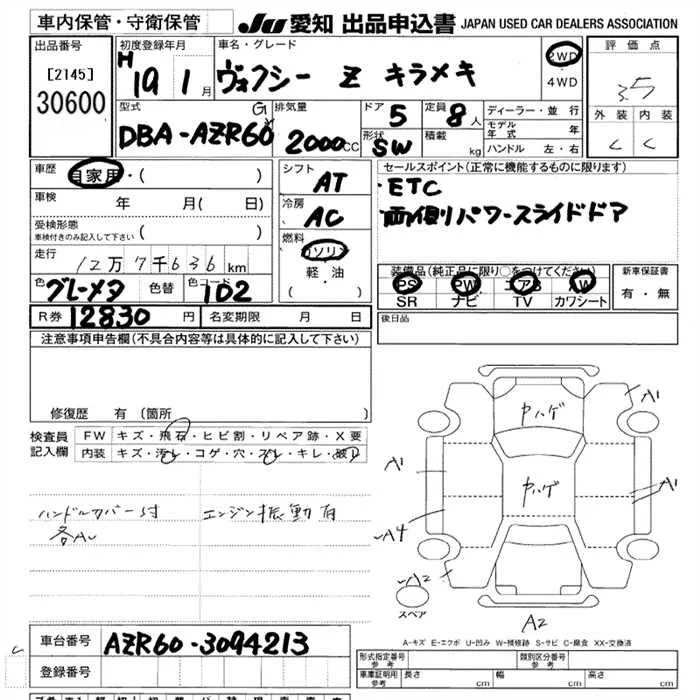 車内保管・守衛保管
JU 愛知 出品申込書 JAPAN USED CAR DEALERS ASSOCIATION
出品番号
[2145]
30600
初度登録年月
H 19 1月
車名・グレード
ヴォクシー Z キラメキ
2WD
4WD
評価点
3.5
外装 内装
C C
型式
DBA-AZR60G
排気量
2000cc
ドア
5
定員
8人
形状
SW
積載
kg
ディーラー・並行
モデル年式 年
ハンドル 左・右
車歴
自家用・( )
車検 年 月( 日)
受検形態
車検付きのみ記入して下さい ( )
走行
12万7千636km
色
グレーメタ
色替
色コード
1D2
シフト
AT
冷房
AC
燃料
ガソリン
軽・油
( )
セールスポイント(正常に機能するものに限ります)
・ETC
・両側パワースライドドア
装備品(純正品に限り○をつけてください)
PS PW エアB AW
SR ナビ TV カワシート
新車保証書
有・無
後日品
R券 12830円
名変期限 月 日
注意事項申告欄(不具合内容等は具体的に記入して下さい)
修復歴 有(箇所 )
検査員記入欄
FW キズ・飛石・ヒビ割・リペア跡・X要
内装 キズ・汚レ・コゲ・穴・スレ・キレ・破レ
ハンドルカバー付
エンジン振動有
各AU
ヤハゲ
ヤハゲ
A1
A1
A1
A4
A2
A2
スペア
A-キズ E-エクボ U-凹み W-補修跡 S-サビ C-腐食 XX-交換済
車台番号
AZR60-3094213
登録番号
形式指定番号 参考
類別区分番号 参考
車庫証明用 参考
長さ cm 幅 cm 高さ cm